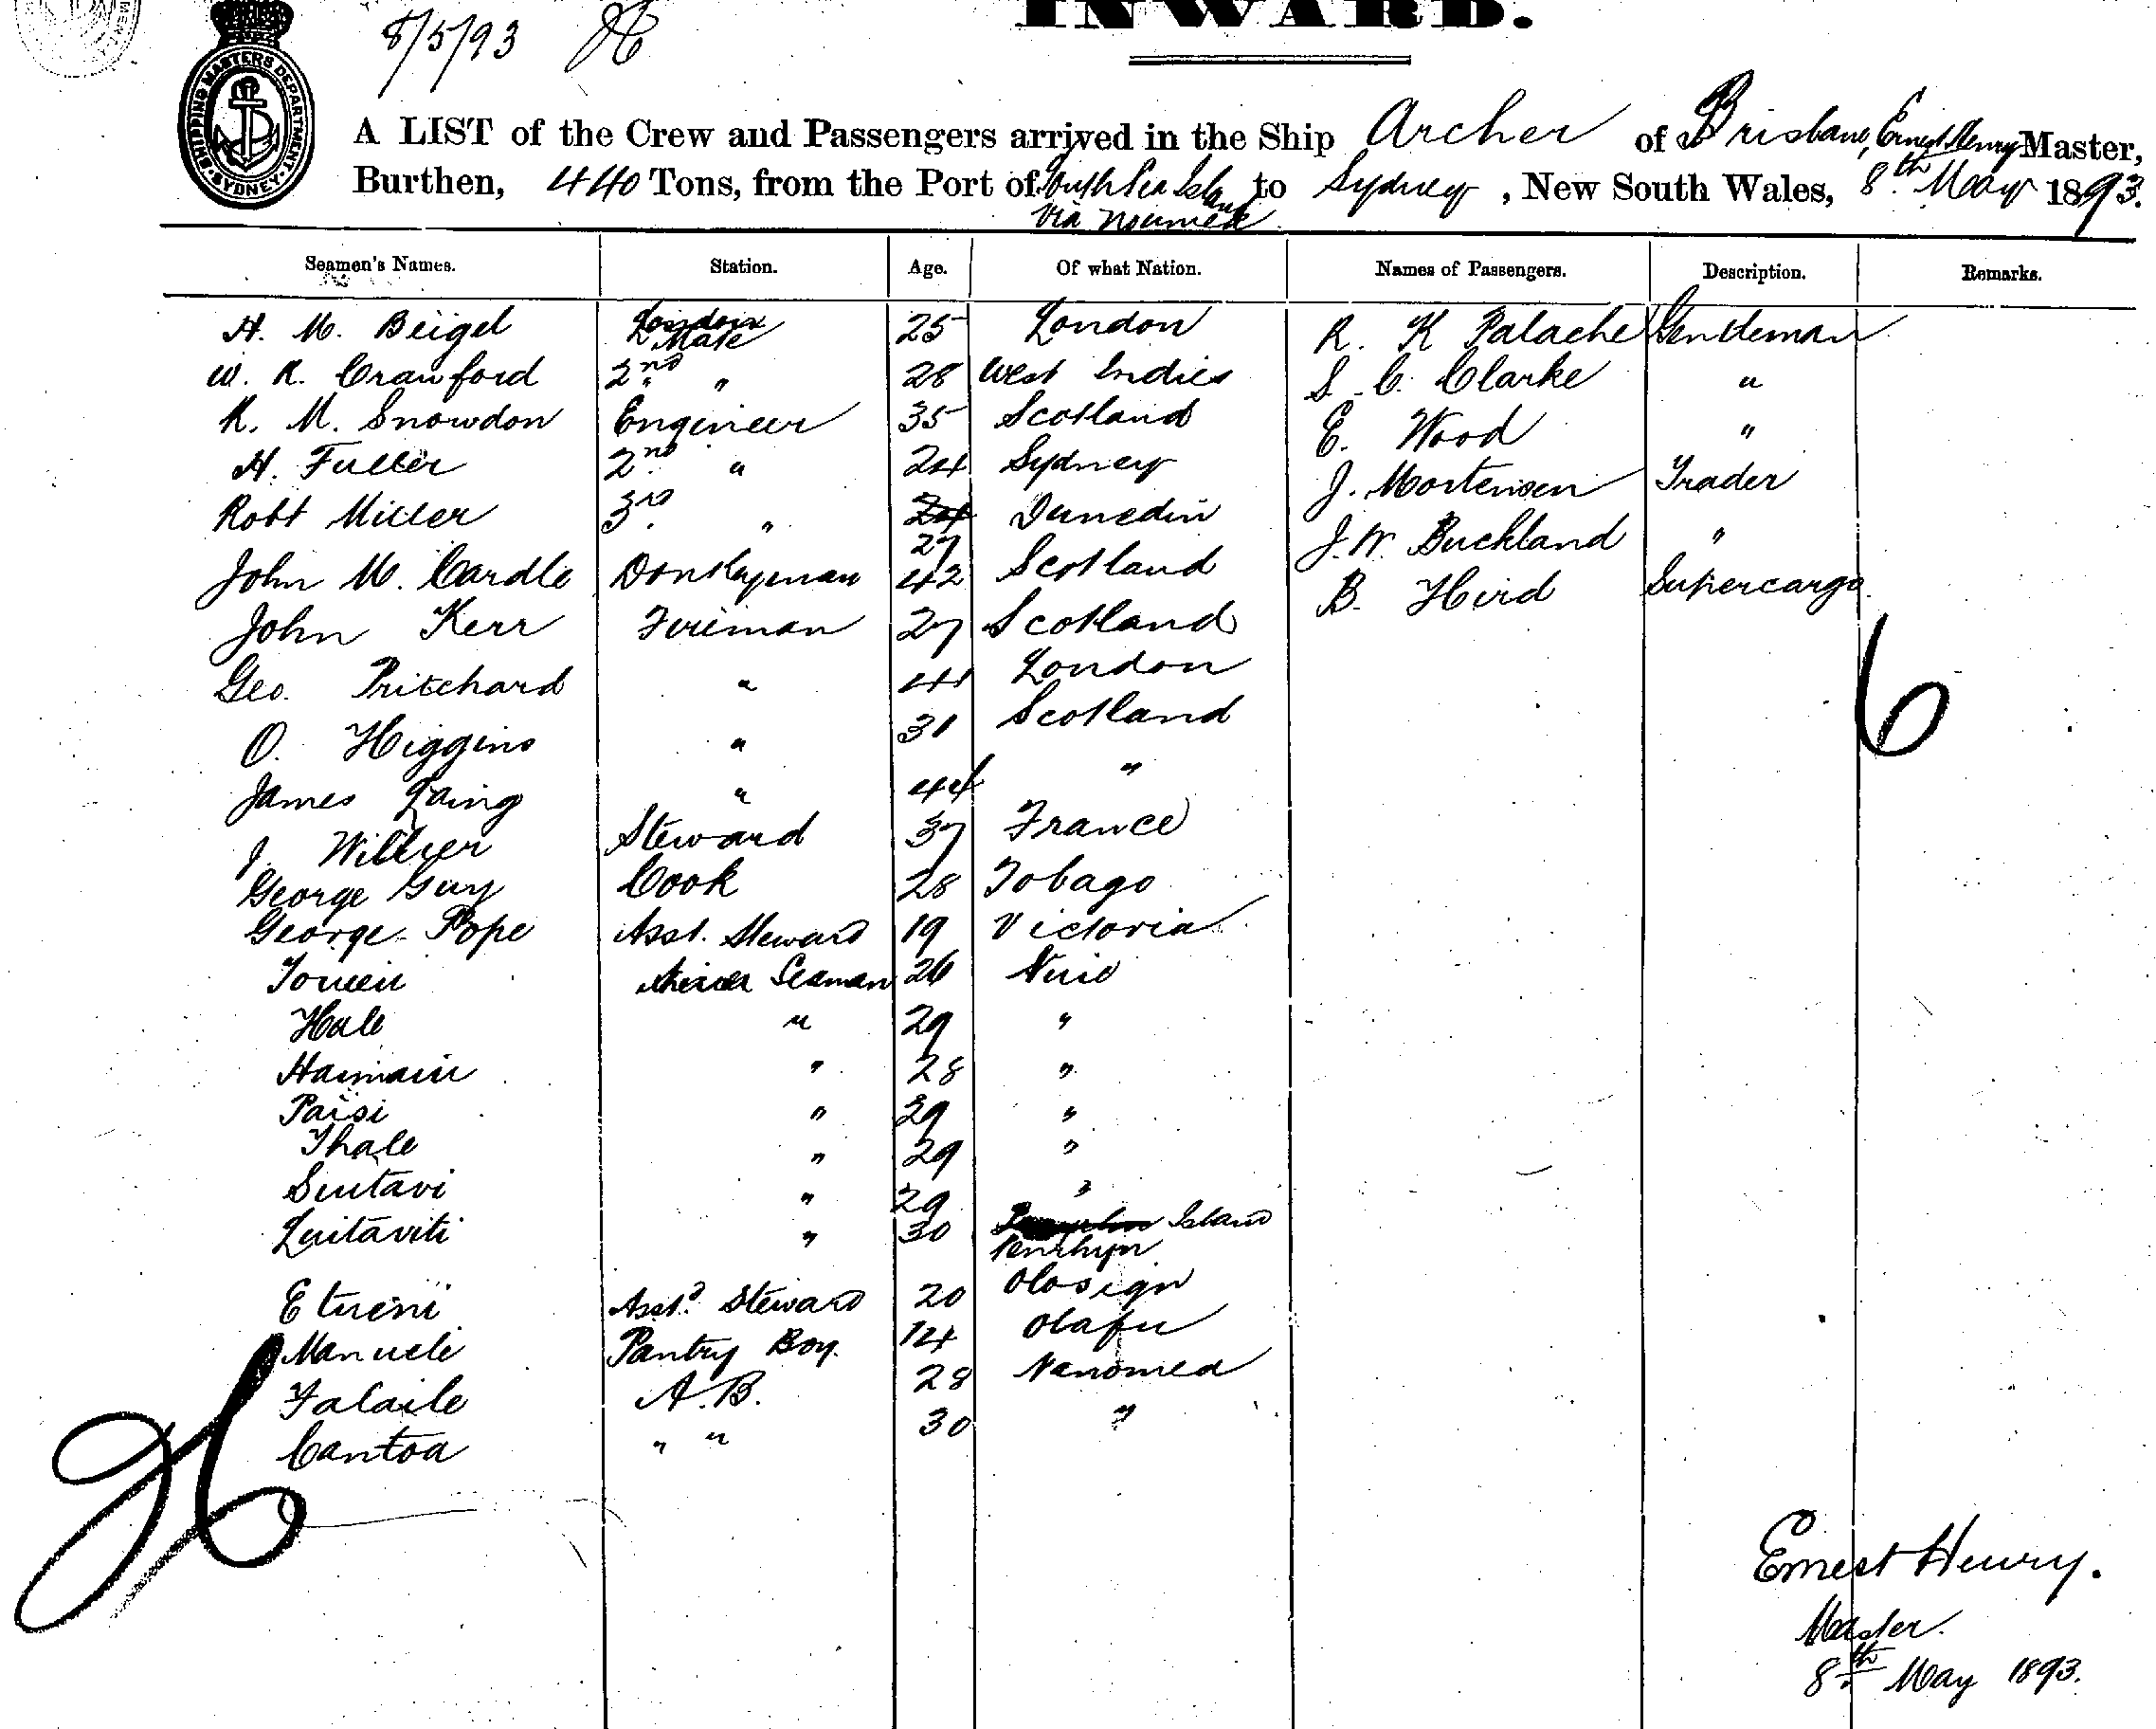 8/5/93
INWARD.
SHIPPING MASTERS DEPARTMENT SYDNEY
A LIST of the Crew and Passengers arrived in the Ship Archer of Brisbane, Ernest Henry Master,
Burthen, 440 Tons, from the Port of South Sea Island to Sydney, New South Wales, 8th May 1893.
Via Noumea
Seamen's Names. Station. Age. Of what Nation. Names of Passengers. Description. Remarks.
H. M. Beigel Mate 25 London R. K Palache Gentleman
W. R. Crawford 2nd " 28 West Indies S. C. Clarke "
R. M. Snowdon Engineer 35 Scotland E. Wood "
H. Fuller 2nd " 24 Sydney J. Mortensen Trader
Robt Miller 3rd " 27 Dunedin J. W. Buckland "
John M. Cardle Donkeyman 42 Scotland B. Hird Supercargo
John Kerr Fireman 27 Scotland
Geo. Pritchard " 41 London
O. Higgins " 31 Scotland
James Laing " 44 "
J. Steward 37 France
George Guy Cook 28 Tobago
George Pope Asst. Steward 19 Victoria
Seaman 26 Niue
Hale " 29 "
" 28 "
Paisi " 29 "
Ihale " 29 "
Sintavi " 29 "
Luitaviti " 30 Island
Penrhyn
Etueni Asst. Steward 20 Olosign
Manuele Pantry Boy. 14 Olafu
Falaile A.B. 28 Nanomea
Cantoa " " 30 "
6
Ernest Henry.
Master.
8th May 1893.